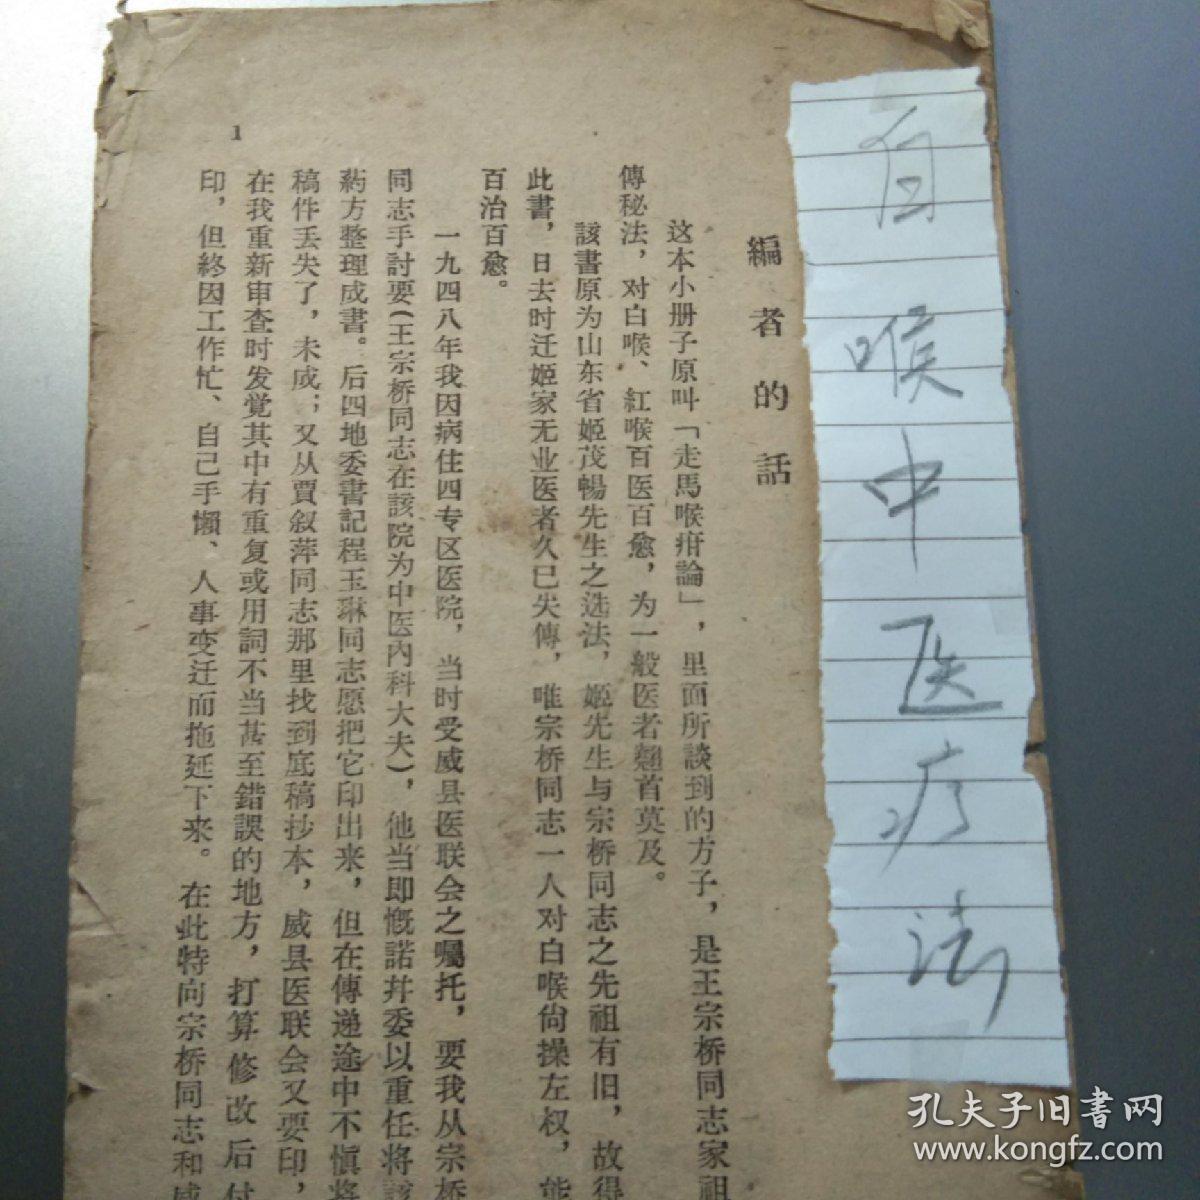 白喉中医疗法
編者的話
这本小册子原叫「走馬喉疳論」，里面所談到的方子，是王宗桥同志家祖
傳秘法，对白喉、紅喉百医百愈，为一般医者翘首莫及。
該書原为山东省姬茂暢先生之选法，姬先生与宗桥同志之先祖有旧，故得
此書，日去时迁姬家无业医者久已失傳，唯宗桥同志一人对白喉尙操左权，能
百治百愈。
一九四八年我因病住四专区医院，当时受威县医联会之囑托，要我从宗桥
同志手討要(王宗桥同志在該院为中医內科大夫)，他当即慨諾幷委以重任将該
葯方整理成書。后四地委書記程玉琳同志愿把它印出来，但在傳递途中不愼将
稿件丟失了，未成；又从賈叙萍同志那里找到底稿抄本，威县医联会又要印，
在我重新审查时发觉其中有重复或用詞不当甚至錯誤的地方，打算修改后付
印，但終因工作忙、自己手懶、人事变迁而拖延下来。在此特向宗桥同志和威
1
孔夫子旧書网
www.kongfz.com